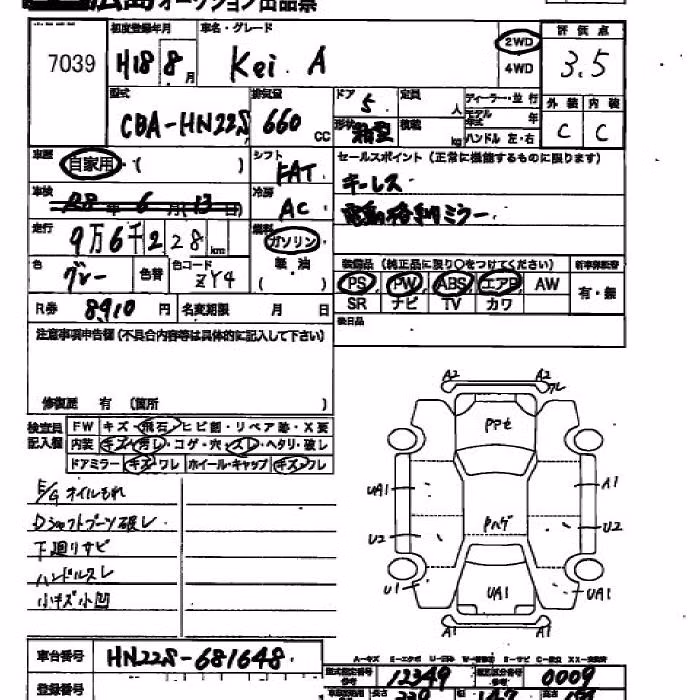 広島オークション出品票
7039
初度登録年月 車名・グレード
H18 8月 Kei A
2WD
4WD
評価点
3.5
型式 CBA-HN22S
排気量 660 CC
ドア 5 定員 人
形状 積載 kg
ディーラー・並行
モデル年式 年
ハンドル 左・右
外装 内装
C C
車歴 自家用・( )
シフト FAT
車検 R8年6月(13日)
冷房 AC
走行 9万6千228km
燃料 ガソリン
軽・油
( )
色 グレー 色替 色コード ZY4
R券 8910円 名変期限 月 日
セールスポイント(正常に機能するものに限ります)
キーレス
電動格納ミラー
装備品(純正品に限り○をつけてください) 新車保証書
PS PW ABS エアB AW
SR ナビ TV カワ
有・無
後日品
注意事項申告欄(不具合内容等は具体的に記入して下さい)
修復歴 有(箇所 )
検査員記入欄
FW キズ・飛石・ヒビ割・リペア跡・X要
内装 キズ・汚レ・コゲ・穴・スレ・ヘタリ・破レ
ドアミラー キズ・ワレ ホイール・キャップ キズ・ワレ
E/Gオイルもれ
Dシャフトブーツ破レ
下廻りサビ
ハンドルスレ
小キズ小凹
A2 A2
ワレ
PPセ
UA1 A1
Pハゲ
U2 U2
U1 UA1 UA1
A1 A1
車台番号 HN22S-681648
登録番号
型式指定番号 12349 類別区分番号 0009